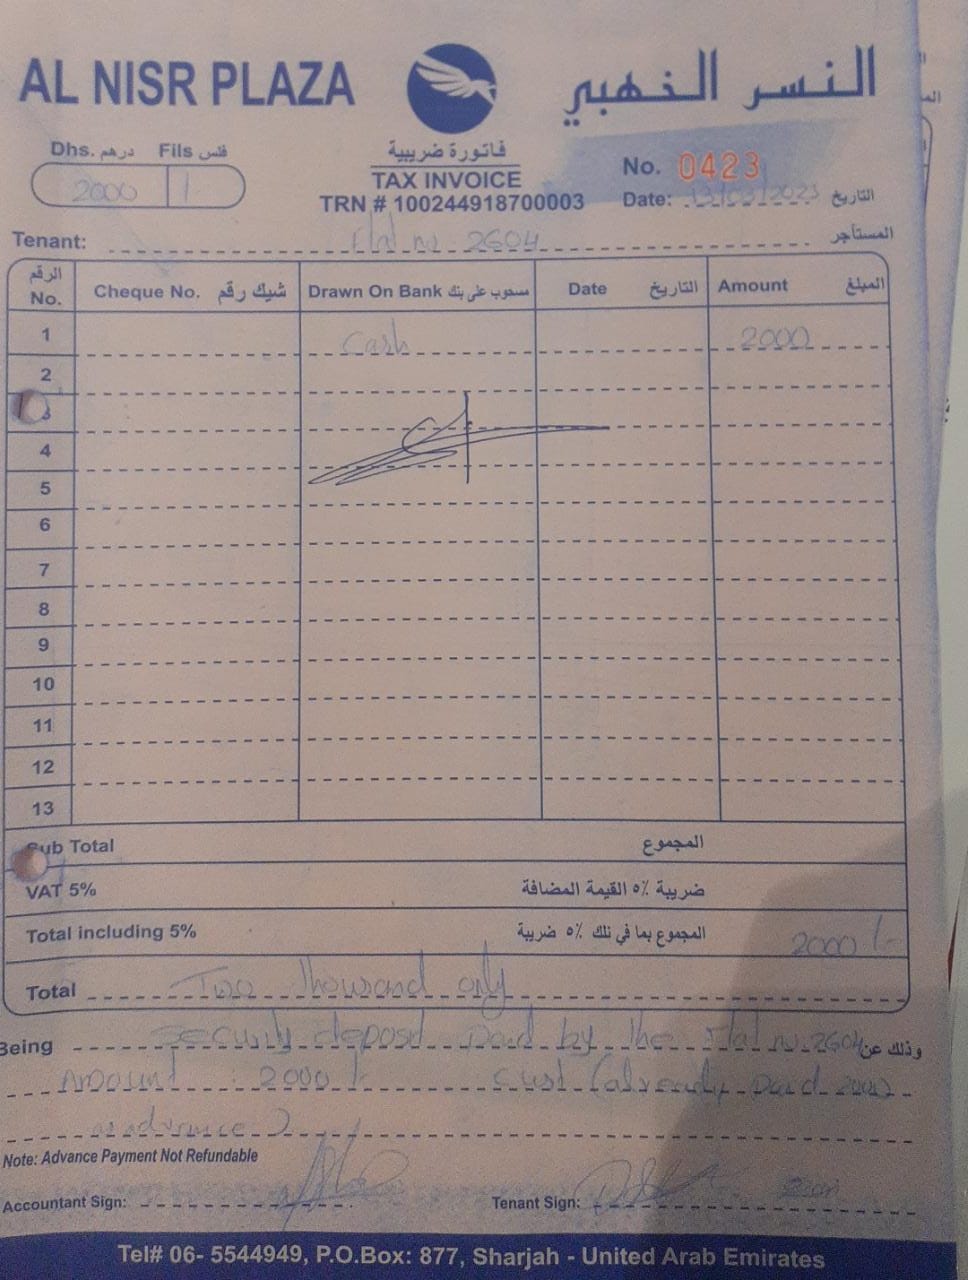 AL NISR PLAZA
النسر الذهبي
Dhs. درهم Fils فلس
2000 /-
فاتورة ضريبية
TAX INVOICE
TRN # 100244918700003
No. 0423
Date: 13/03/2023 التاريخ
Tenant: Flat no 2604 المستأجر
الرقم No. Cheque No. شيك رقم Drawn On Bank مسحوب على بنك Date التاريخ Amount المبلغ
1 Cash 2000
2
3
4
5
6
7
8
9
10
11
12
13
Sub Total المجموع
VAT 5% ضريبة ٥٪ القيمة المضافة
Total including 5% المجموع بما في ذلك ٥٪ ضريبة 2000 /-
Total Two thousand only
Being security deposit paid by the Flat no. 2604 وذلك عن
Amount : 2000 /- (already paid 2000
as advance)
Note: Advance Payment Not Refundable
Accountant Sign: Tenant Sign:
Tel# 06- 5544949, P.O.Box: 877, Sharjah - United Arab Emirates